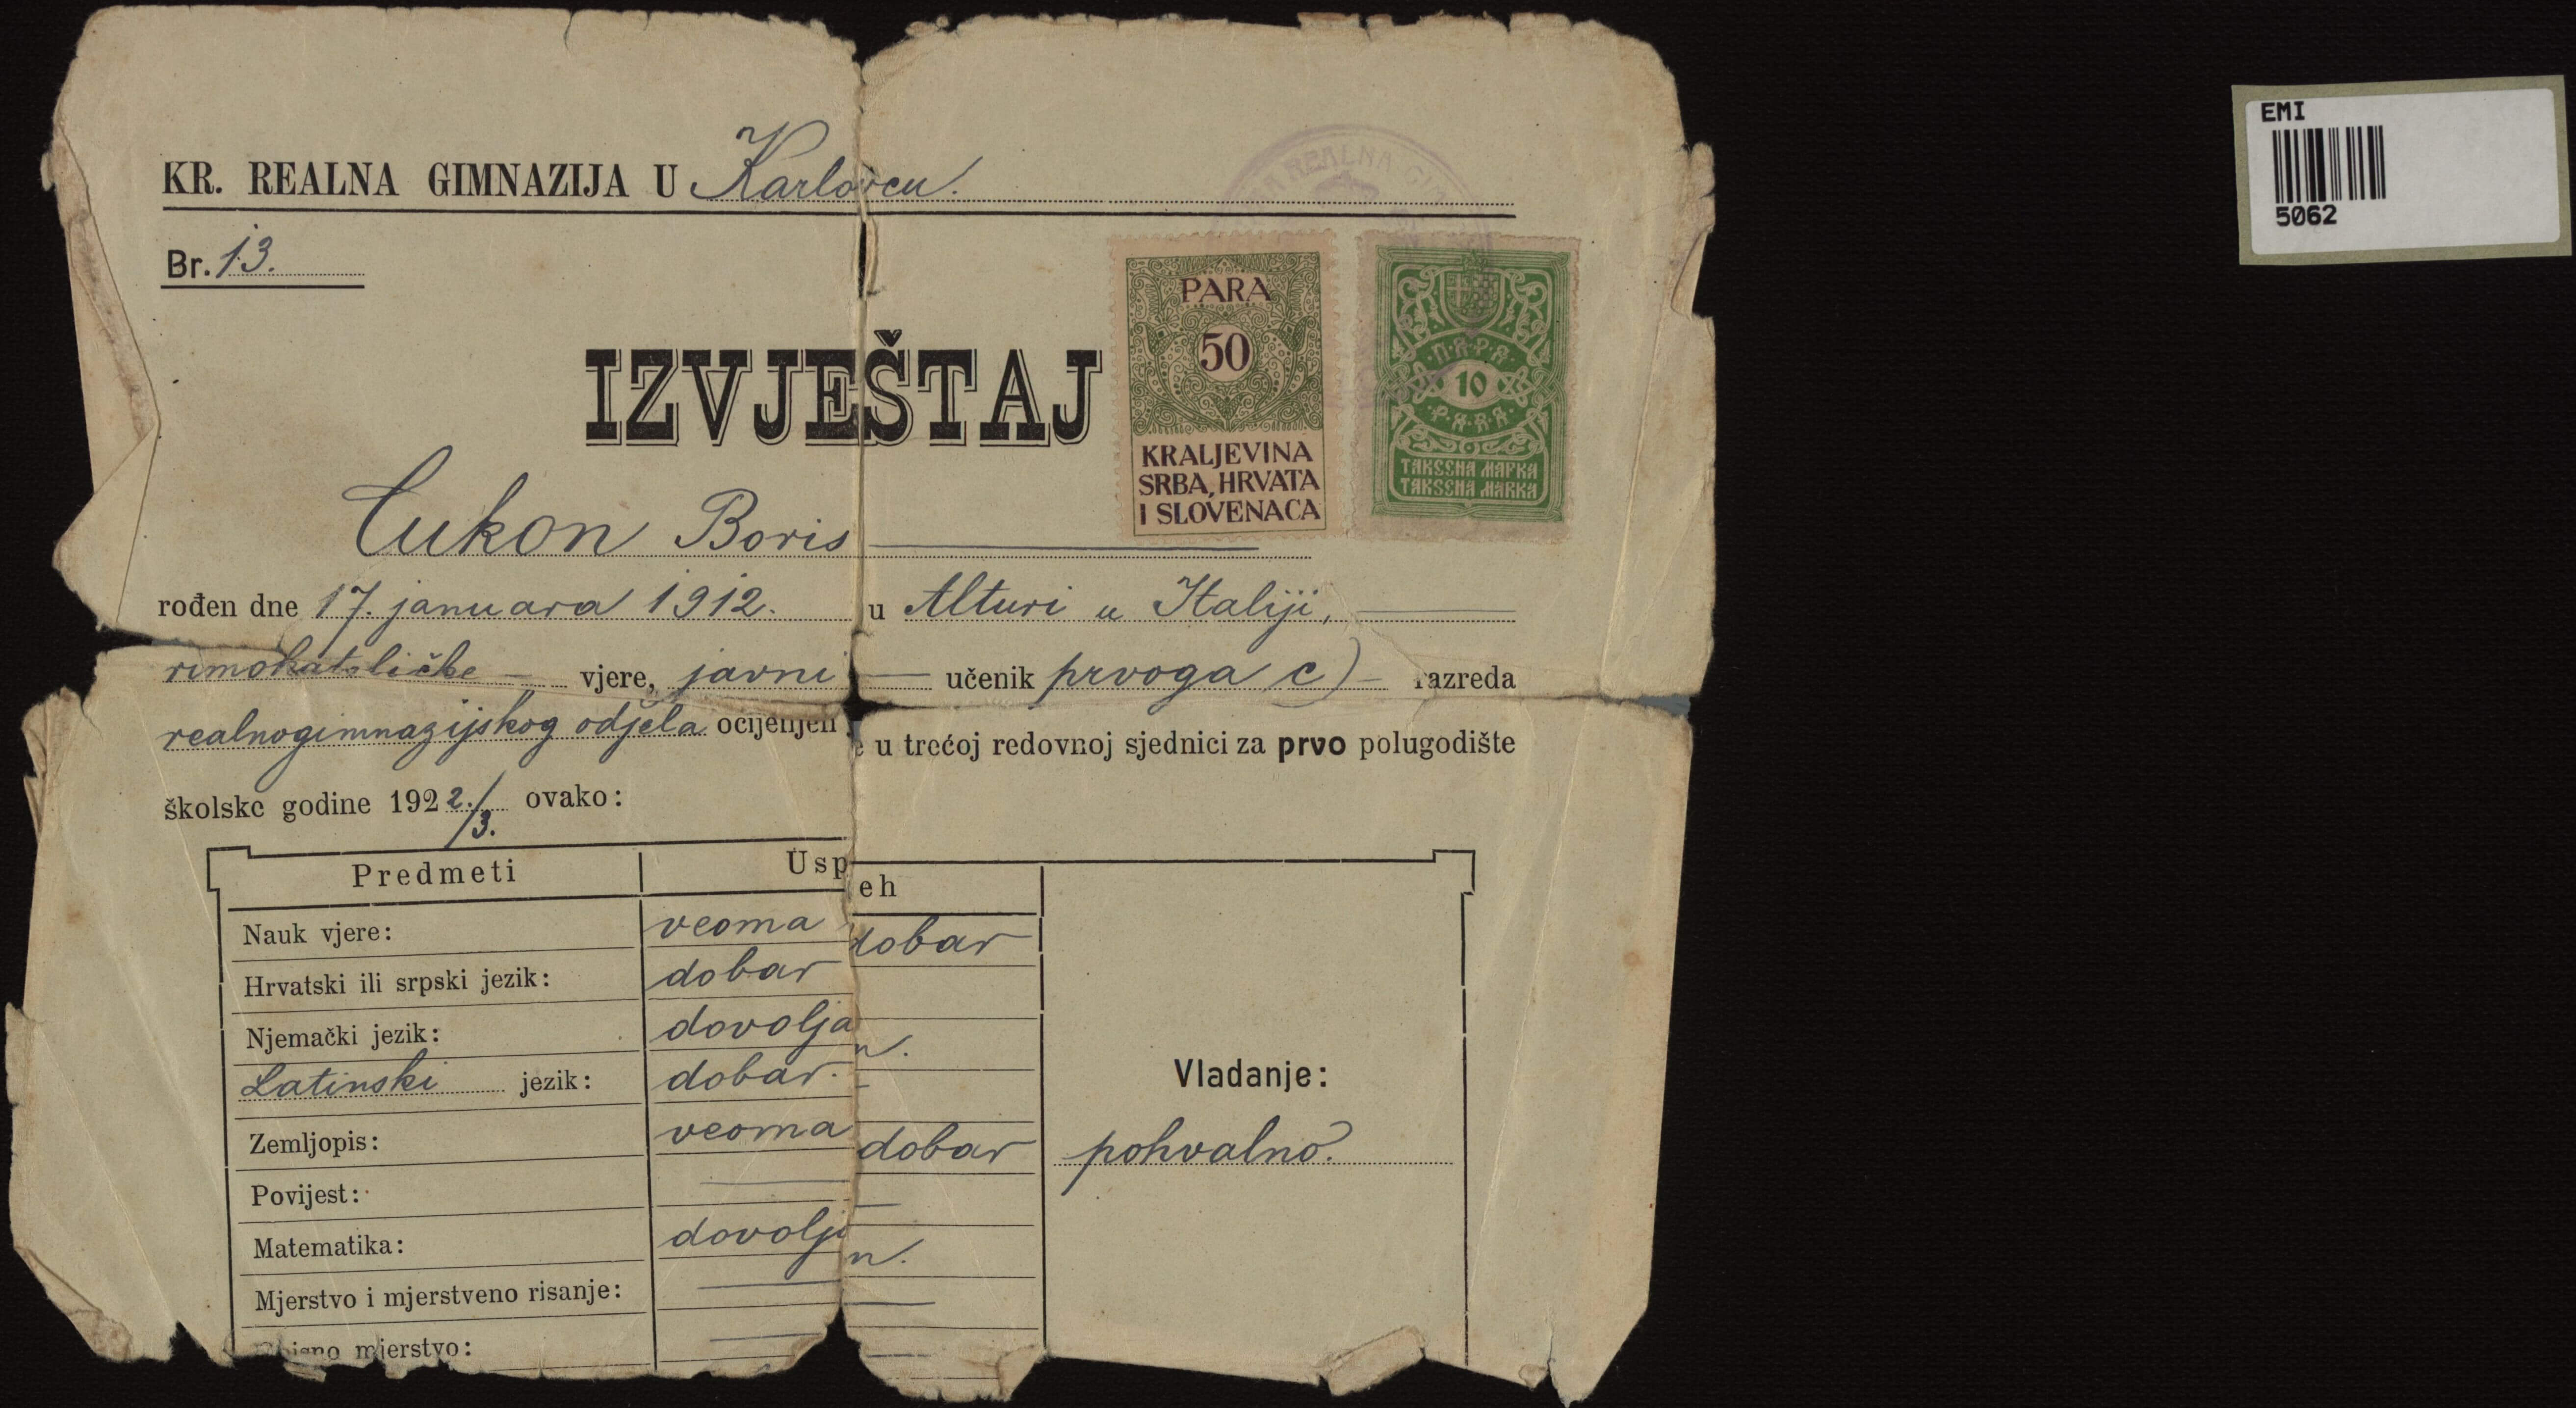 KR. REALNA GIMNAZIJA U Karlovcu.
Br. 13.
REALNA
IZVJEŠTAJ
PARA
50
KRALJEVINA
SRBA, HRVATA
I SLOVENACA
ПАРА
10
PARA
ТАКСЕНА МАРКА
TAKSENA MARKA
Cukon Boris
rođen dne 17. januara 1912. u Alturi u Italiji,
rimokatoličke – vjere, javni — učenik prvoga c) – razreda
realnogimnazijskog odjela ocijenjen je u trećoj redovnoj sjednici za prvo polugodište
školske godine 1922./3. ovako:
Predmeti Uspjeh
Nauk vjere: veoma dobar
Hrvatski ili srpski jezik: dobar
Njemački jezik: dovoljan.
Latinski jezik: dobar. –
Zemljopis: veoma dobar
Povijest: —
Matematika: dovoljan.
Mjerstvo i mjerstveno risanje: —
mjerstvo: —
Vladanje:
pohvalno.
EMI
5062